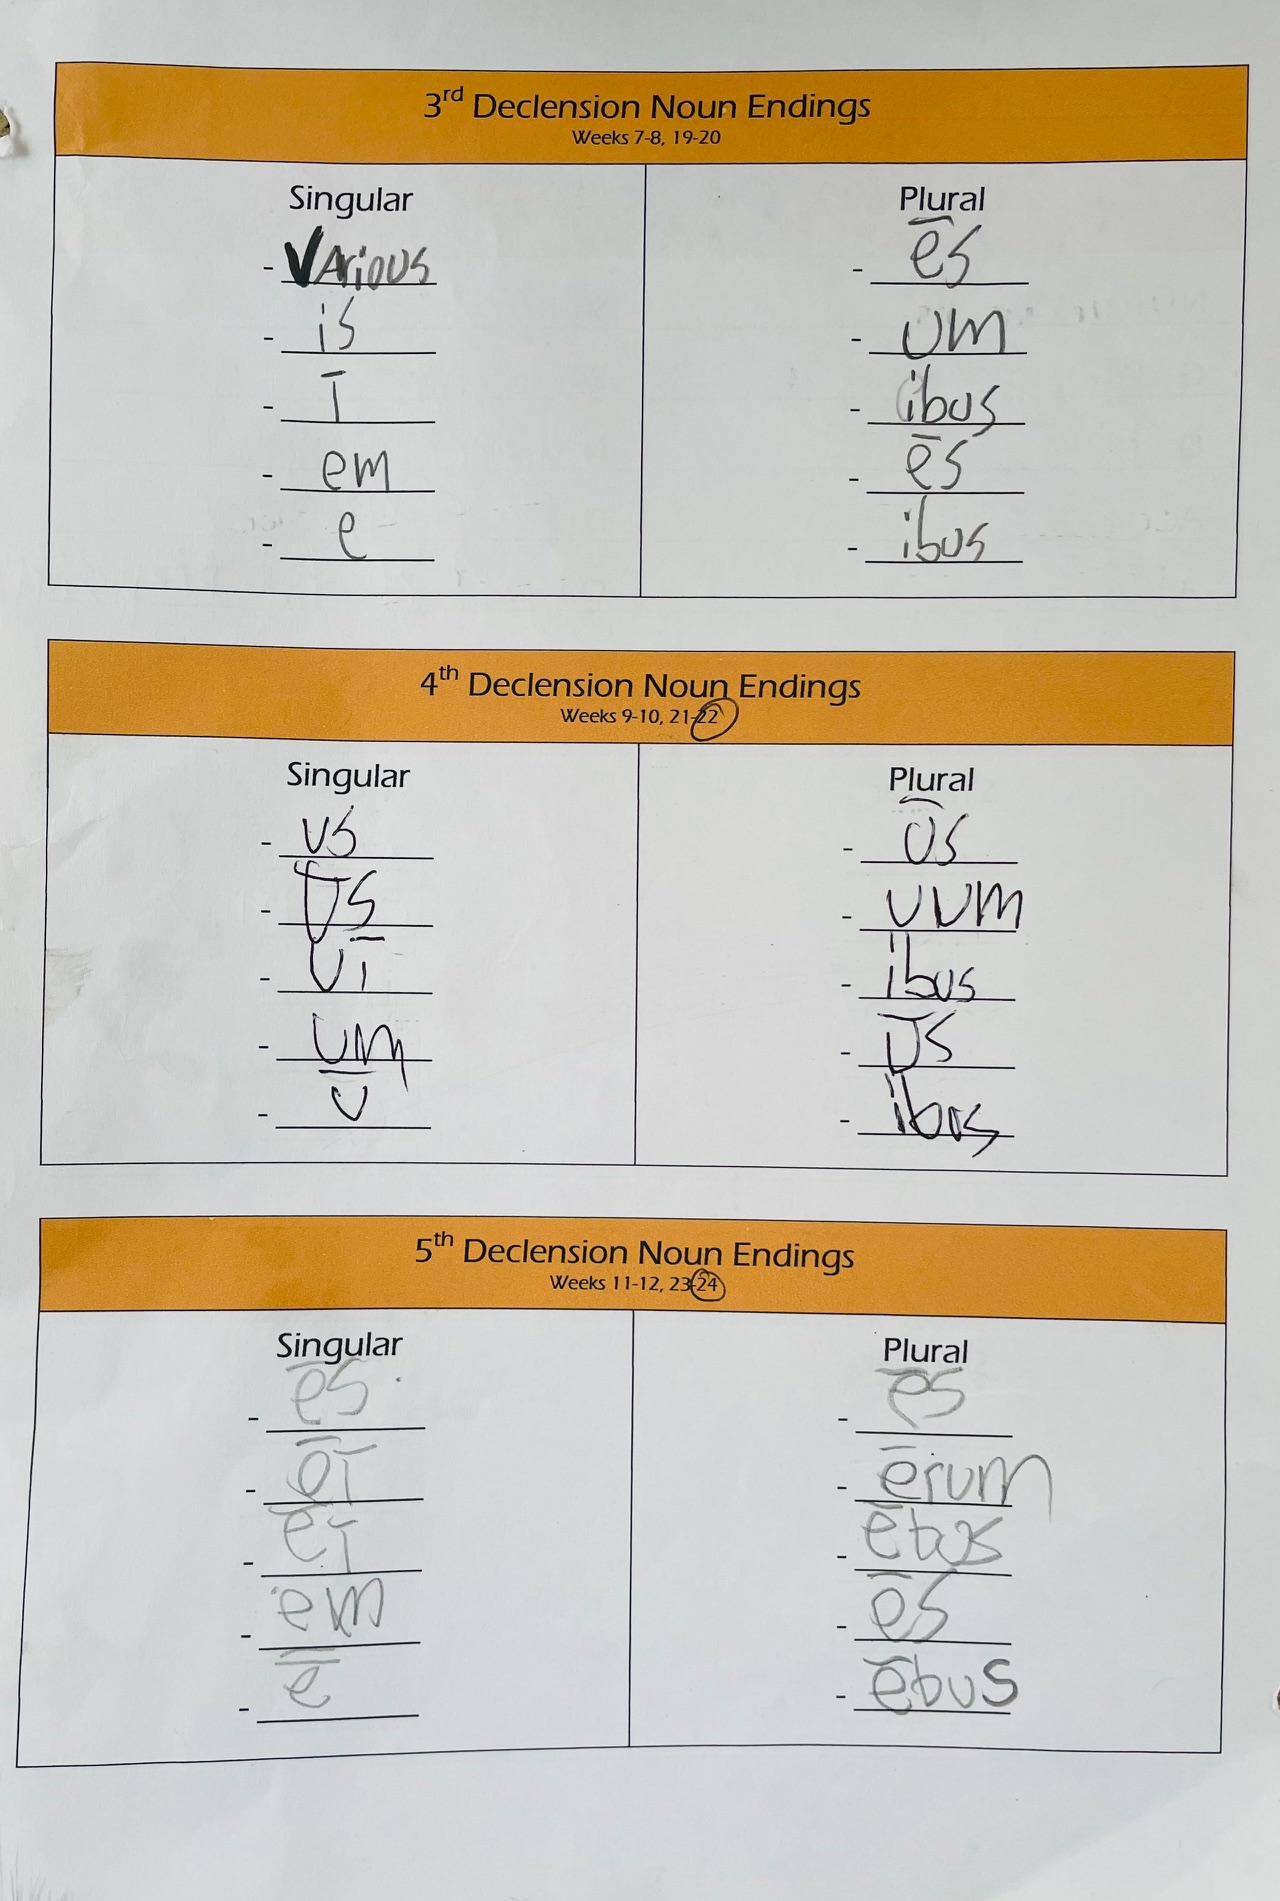 3rd Declension Noun Endings
Weeks 7-8, 19-20
Singular
- VArious
- is
- ī
- em
- e
Plural
- ēs
- um
- ibus
- ēs
- ibus
4th Declension Noun Endings
Weeks 9-10, 21-22
Singular
- us
- ūs
- uī
- um
- ū
Plural
- ūs
- uum
- ibus
- ūs
- ibus
5th Declension Noun Endings
Weeks 11-12, 23-24
Singular
- ēs
- ēī
- ēī
- em
- ē
Plural
- ēs
- ērum
- ēbus
- ēs
- ēbus